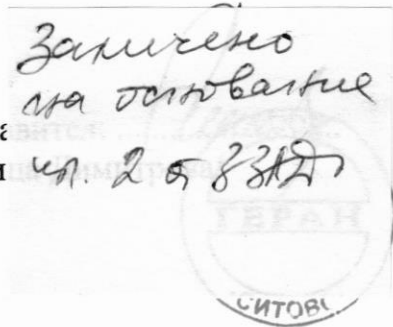 Заличено
на основание
чл. 2 от ЗЗЛД
ГЕРАН
СИТОВ